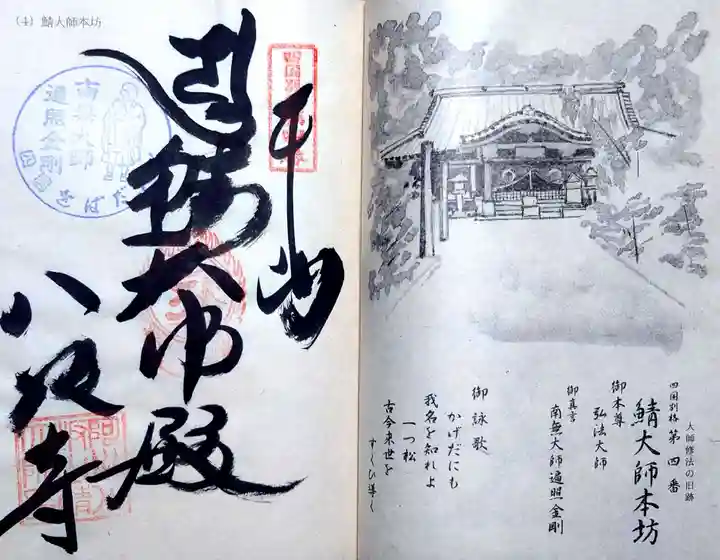 大師修法の旧跡
四国別格 第四番
鯖大師本坊
御本尊
弘法大師
御真言
南無大師遍照金剛
御詠歌
かげだにも
我名を知れよ
一つ松
古今来世を
すくひ導く
(4) 鯖大師本坊
奉
鯖大師殿
八坂寺
南無大師
遍照金剛